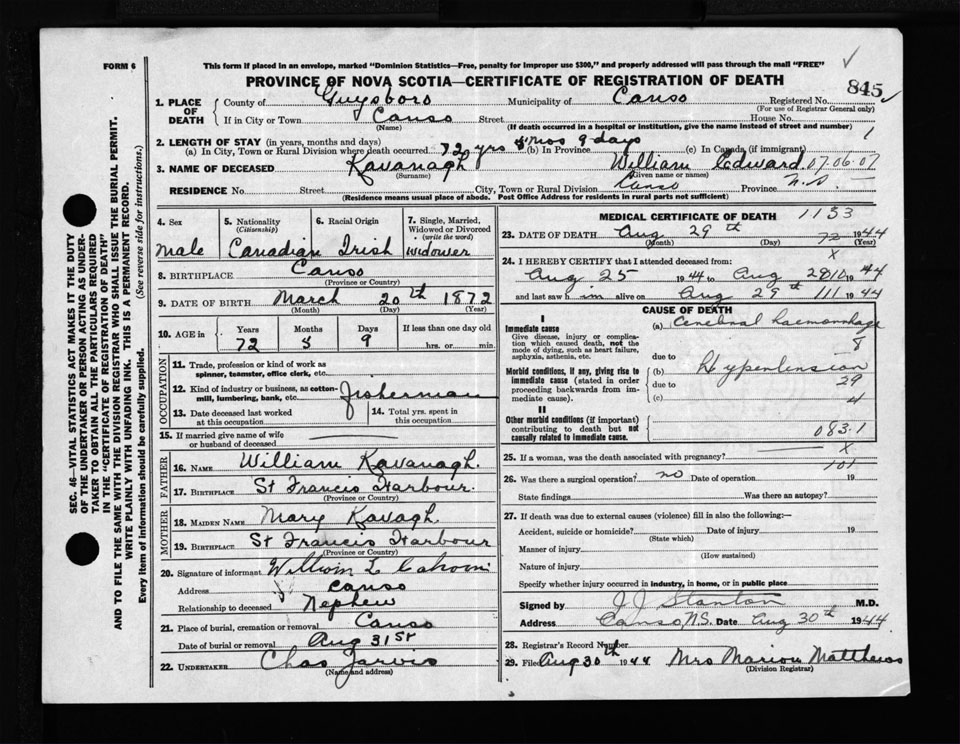 FORM 6
This form if placed in an envelope, marked "Dominion Statistics—Free, penalty for improper use $300," and properly addressed will pass through the mail "FREE"
PROVINCE OF NOVA SCOTIA—CERTIFICATE OF REGISTRATION OF DEATH
845
1. PLACE OF DEATH
County of Guysboro Municipality of Canso Registered No.
(For use of Registrar General only)
If in City or Town Canso Street House No.
(Name) (If death occurred in a hospital or institution, give the name instead of street and number)
1
2. LENGTH OF STAY (in years, months and days)
(a) In City, Town or Rural Division where death occurred 72 yrs 5 mos 9 days (b) In Province (c) In Canada (if immigrant)
3. NAME OF DECEASED Kavanagh William Edward 07.06.07
(Surname) (Given name or names)
RESIDENCE No. Street City, Town or Rural Division Canso Province N.S.
(Residence means usual place of abode. Post Office Address for residents in rural parts not sufficient)
SEC. 46—VITAL STATISTICS ACT MAKES IT THE DUTY
OF THE UNDERTAKER OR PERSON ACTING AS UNDER-
TAKER TO OBTAIN ALL THE PARTICULARS REQUIRED
IN THE "CERTIFICATE OF REGISTRATION OF DEATH"
AND TO FILE THE SAME WITH THE DIVISION REGISTRAR WHO SHALL ISSUE THE BURIAL PERMIT.
WRITE PLAINLY WITH UNFADING INK. THIS IS A PERMANENT RECORD.
Every item of information should be carefully supplied. (See reverse side for instructions.)
4. Sex
male
5. Nationality
(Citizenship)
Canadian
6. Racial Origin
Irish
7. Single, Married,
Widowed or Divorced
(write the word)
widower
8. BIRTHPLACE Canso
(Province or Country)
9. DATE OF BIRTH March 20th 1872
(Month) (Day) (Year)
10. AGE in
Years Months Days If less than one day old
72 5 9 hrs. or min.
OCCUPATION
11. Trade, profession or kind of work as
spinner, teamster, office clerk, etc.
12. Kind of industry or business, as cotton-
mill, lumbering, bank, etc. Fisherman
13. Date deceased last worked
at this occupation
14. Total yrs. spent in
this occupation
15. If married give name of wife
or husband of deceased
FATHER
16. NAME William Kavanagh.
17. BIRTHPLACE St Francis Harbour.
(Province or Country)
MOTHER
18. MAIDEN NAME Mary Kavagh
19. BIRTHPLACE St Francis Harbour
(Province or Country)
20. Signature of informant William L
Address Canso
Relationship to deceased Nephew
21. Place of burial, cremation or removal Canso
Date of burial or removal Aug 31st
22. UNDERTAKER Chas Jarvis
(Name and address)
MEDICAL CERTIFICATE OF DEATH 1153
23. DATE OF DEATH Aug 29th 72 1944
(Month) (Day) (Year)
X
24. I HEREBY CERTIFY that I attended deceased from:
Aug 25 1944 to Aug 2910 1944
and last saw him alive on Aug 29th 111 1944
CAUSE OF DEATH
I
Immediate cause
Give disease, injury or complica-
tion which caused death, not the
mode of dying, such as heart failure,
asphyxia, asthenia, etc.
(a) Cerebral haemorrhage
8
due to
Morbid conditions, if any, giving rise to
immediate cause (stated in order
proceeding backwards from im-
mediate cause).
(b) Hypertension
due to 29
(c) 4
II
Other morbid conditions (if important)
contributing to death but not
causally related to immediate cause.
083.1
25. If a woman, was the death associated with pregnancy? X
101
26. Was there a surgical operation? no Date of operation 19
State findings Was there an autopsy?
27. If death was due to external causes (violence) fill in also the following:—
Accident, suicide or homicide? Date of injury 19
(State which)
Manner of injury
(How sustained)
Nature of injury
Specify whether injury occurred in industry, in home, or in public place
Signed by J J Stanton M.D.
Address Canso, N.S. Date Aug 30th 1944
28. Registrar's Record Number
29. Filed Aug 30th 1944 Mrs Marion Matthews
(Division Registrar)